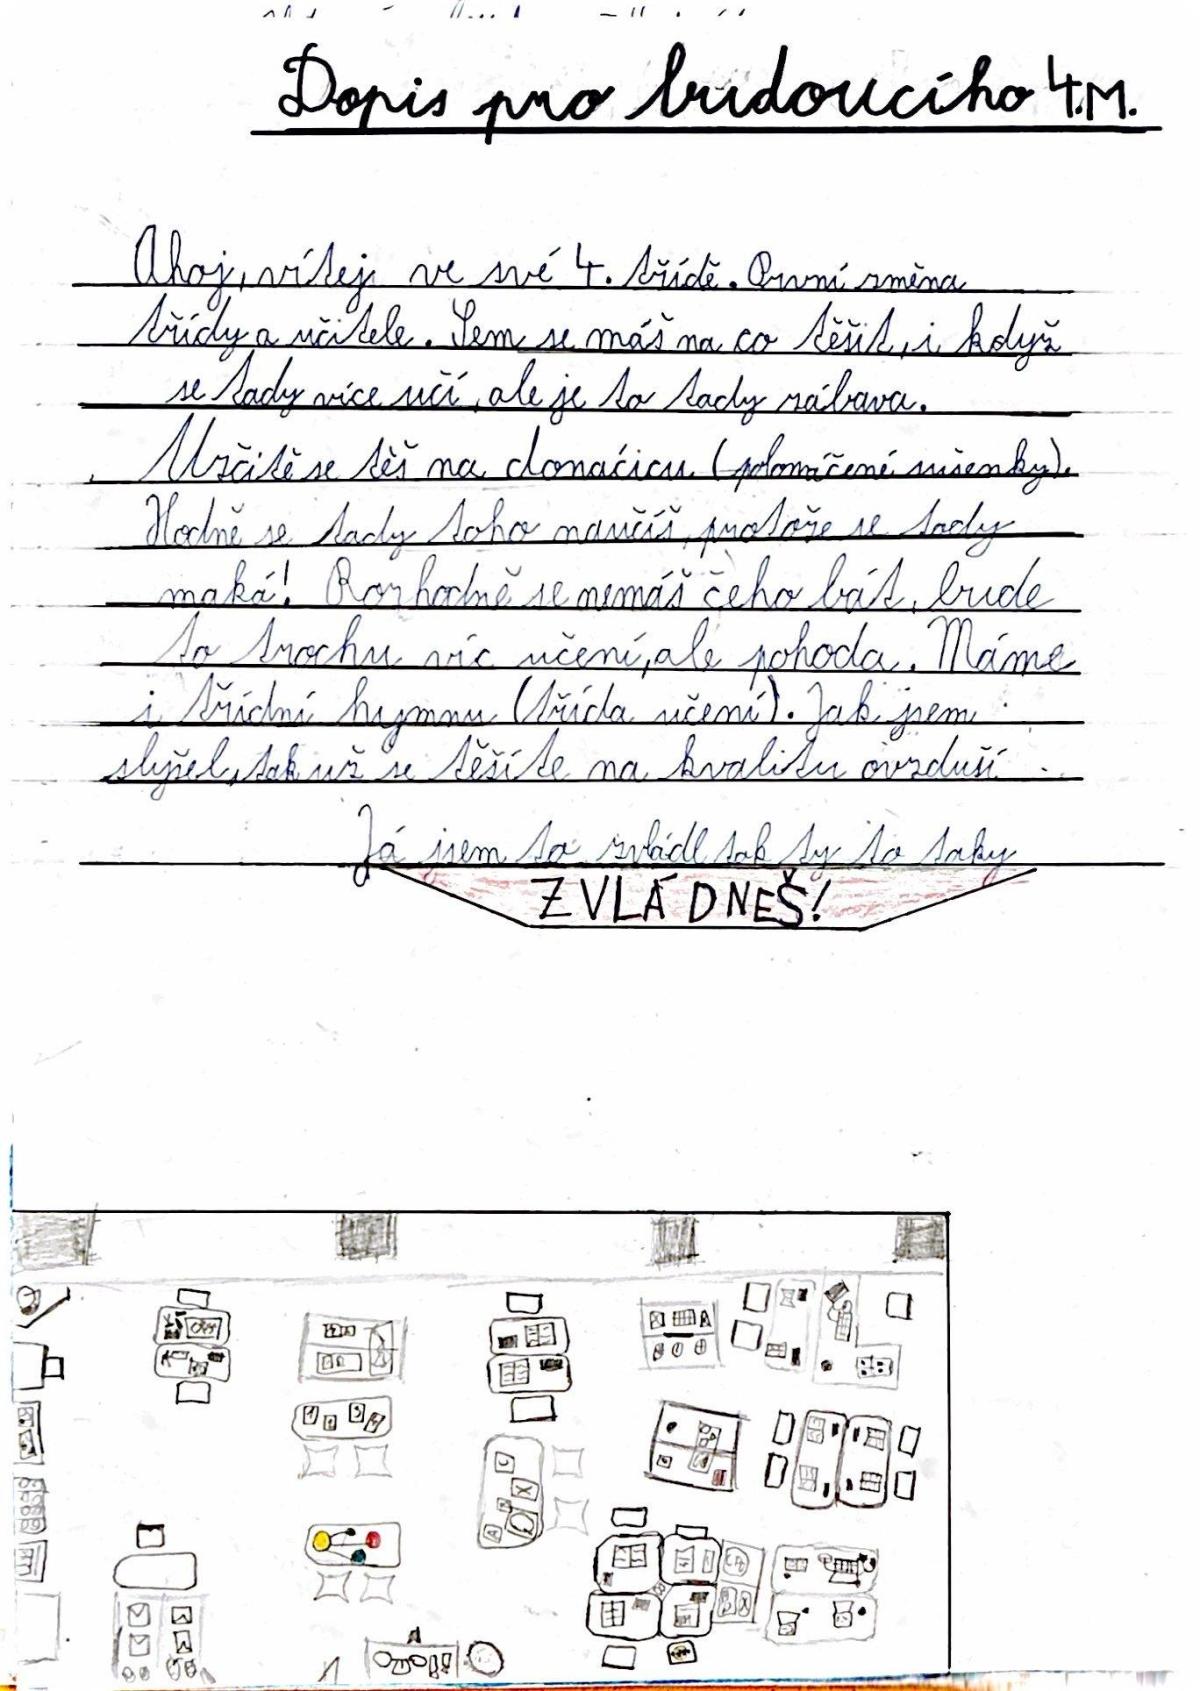 Dopis pro budoucího 4.M.
Ahoj, vítej ve své 4. třídě. První změna
třídy a učitele. Sem se máš na co těšit, i když
se tady více učí, ale je to tady zábava.
Určitě se těš na donaćicu (polomáčené sušenky).
Hodně se tady toho naučíš, protože se tady
maká! Rozhodně se nemáš čeho bát, bude
to trochu víc učení, ale pohoda. Máme
i třídní hymnu (třída učení). Jak jsem
slyšel, tak už se těšíte na kvalitu ovzduší
Já jsem to zvládl tak ty to taky
ZVLÁDNEŠ!